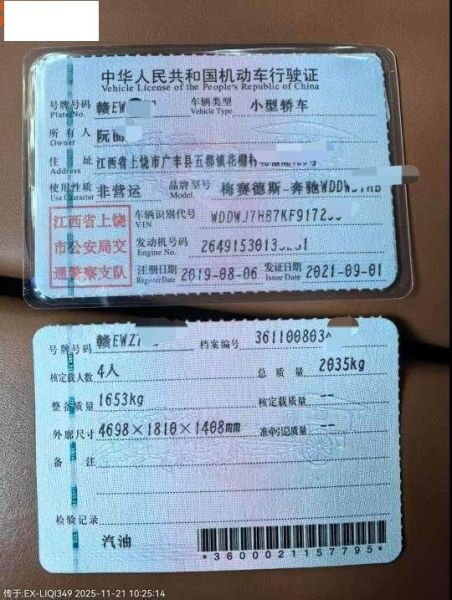 中华人民共和国机动车行驶证
Vehicle License of the People's Republic of China
号牌号码 赣EW 车辆类型 小型轿车
Plate No. Vehicle Type
所有人 阮
Owner
住址 江西省上饶市广丰县五都镇花棚村
Address
使用性质 非营运 品牌型号 梅赛德斯-奔驰WDDW
Use Character Model
江西省上饶
市公安局交
通警察支队
车辆识别代号 WDDWJ7HB7KF9172
VIN
发动机号码 2649153013
Engine No.
注册日期 2019-08-06 发证日期 2021-09-01
Register Date Issue Date
号牌号码 赣EWZ 档案编号 361100803
核定载人数 4人 总质量 2035kg
整备质量 1653kg 核定载质量 --
外廓尺寸 4698×1810×1408mm 准牵引总质量 --
备注
检验记录
汽油
*3600021157795*
传于:EX-LIQI349 2025-11-21 10:25:14